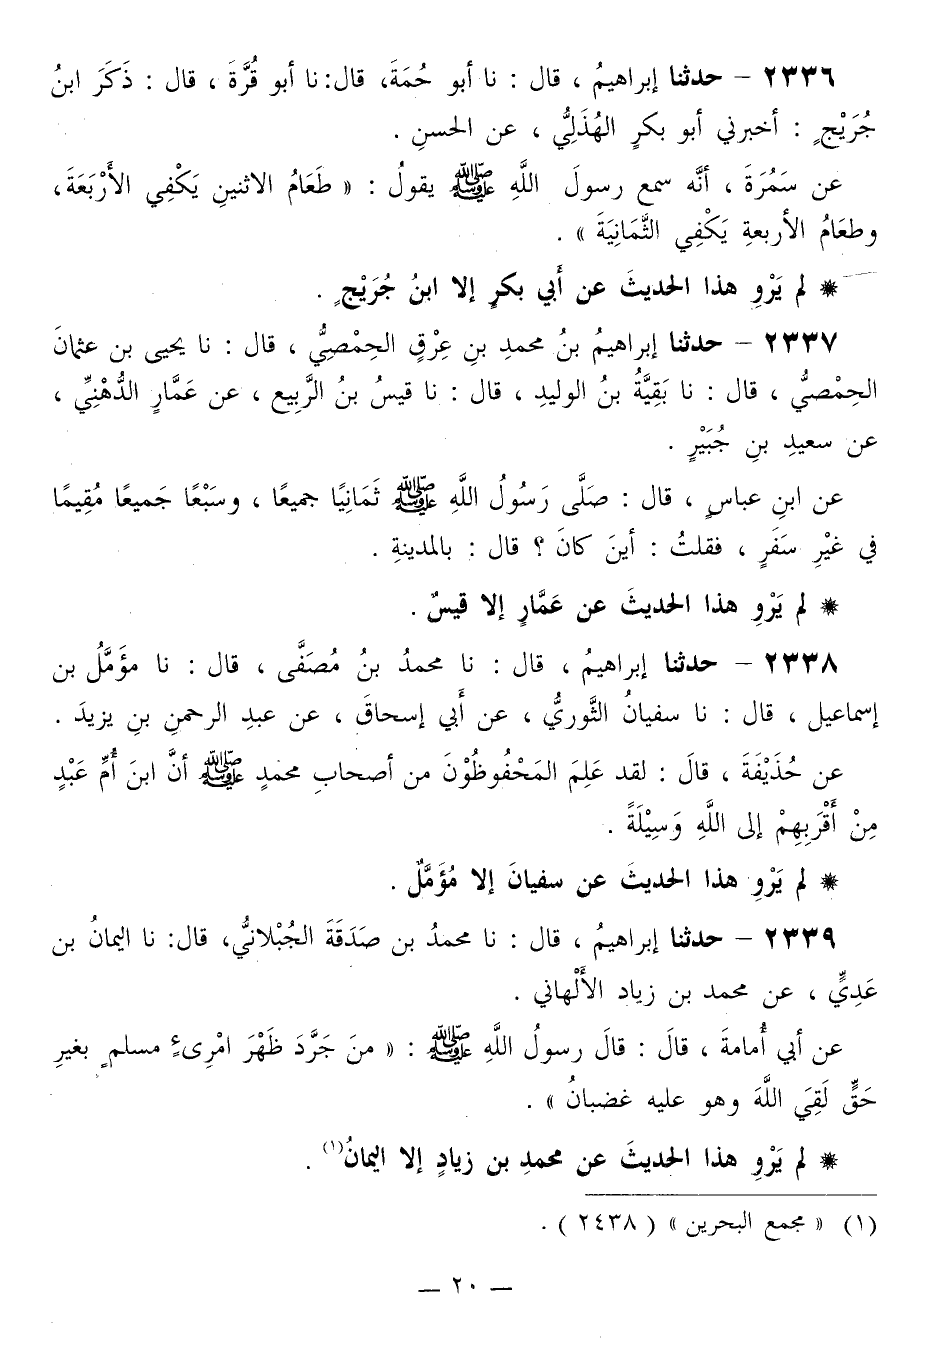 ٢٣٣٦ – حدثنا إبراهيمُ ، قال : نا أبو حُمَةَ، قال: نا أبو قُرَّةَ ، قال : ذَكَرَ ابنُ
جُرَيْجٍ : أخبرني أبو بكرٍ الهُذَلِيُّ ، عن الحسنِ .
عن سَمُرَةَ ، أنَّه سمع رسولَ اللَّهِ ﷺ يقولُ : « طَعَامُ الاثنينِ يَكْفِي الأَرْبَعَةَ،
وطعَامُ الأربعةِ يَكْفِي الثَّمَانِيَةَ » .
* لم يَرْوِ هذا الحديثَ عن أَبي بكرٍ إلا ابنُ جُرَيْجٍ .
٢٣٣٧ – حدثنا إبراهيمُ بنُ محمدِ بنِ عِرْقٍ الحِمْصِيُّ ، قال : نا يحيى بن عثمانَ
الحِمْصيُّ ، قال : نا بَقِيَّةُ بنُ الوليدِ ، قال : نا قيسُ بنُ الرَّبِيع ، عن عَمَّارٍ الدُّهْنِيِّ ،
عن سعيدِ بنِ جُبَيْرٍ .
عن ابنِ عباسٍ ، قال : صَلَّى رَسُولُ اللَّهِ ﷺ ثَمَانِيًا جميعًا ، وسَبْعًا جَميعًا مُقِيمًا
في غيْرِ سَفَرٍ ، فقلتُ : أينَ كانَ ؟ قال : بالمدينةِ .
* لم يَرْوِ هذا الحديثَ عن عَمَّارٍ إلا قيسٌ .
٢٣٣٨ – حدثنا إبراهيمُ ، قال : نا محمدُ بنُ مُصَفَّى ، قال : نا مؤَمَّلُ بن
إسماعيل ، قال : نا سفيانُ الثَّوريُّ ، عن أَبي إسحاقَ ، عن عبدِ الرحمنِ بنِ يزيدَ .
عن حُذَيْفَةَ ، قالَ : لقد عَلِمَ المَحْفُوظُوْنَ من أصحابِ محمدٍ ﷺ أنَّ ابنَ أُمِّ عَبْدٍ
مِنْ أَقْرَبِهِمْ إلى اللَّهِ وَسِيْلَةً .
* لم يَرْوِ هذا الحديثَ عن سفيانَ إلا مُؤَمَّلٌ .
٢٣٣٩ – حدثنا إبراهيمُ ، قال : نا محمدُ بن صَدَقَةَ الجُبْلانيُّ، قال: نا اليمانُ بن
عَدِيٍّ ، عن محمد بن زياد الأَلْهاني .
عن أبي أُمامةَ ، قالَ : قالَ رسولُ اللَّهِ ﷺ : « منَ جَرَّدَ ظَهْرَ امْرِىءٍ مسلمٍ بغيرِ
حَقٍّ لَقِيَ اللَّهَ وهو عليه غضبانُ » .
* لم يَرْوِ هذا الحديثَ عن محمدِ بن زيادٍ إلا اليمانُ(١) .
(١) « مجمع البحرين » ( ٢٤٣٨ ) .
— ٢٠ —